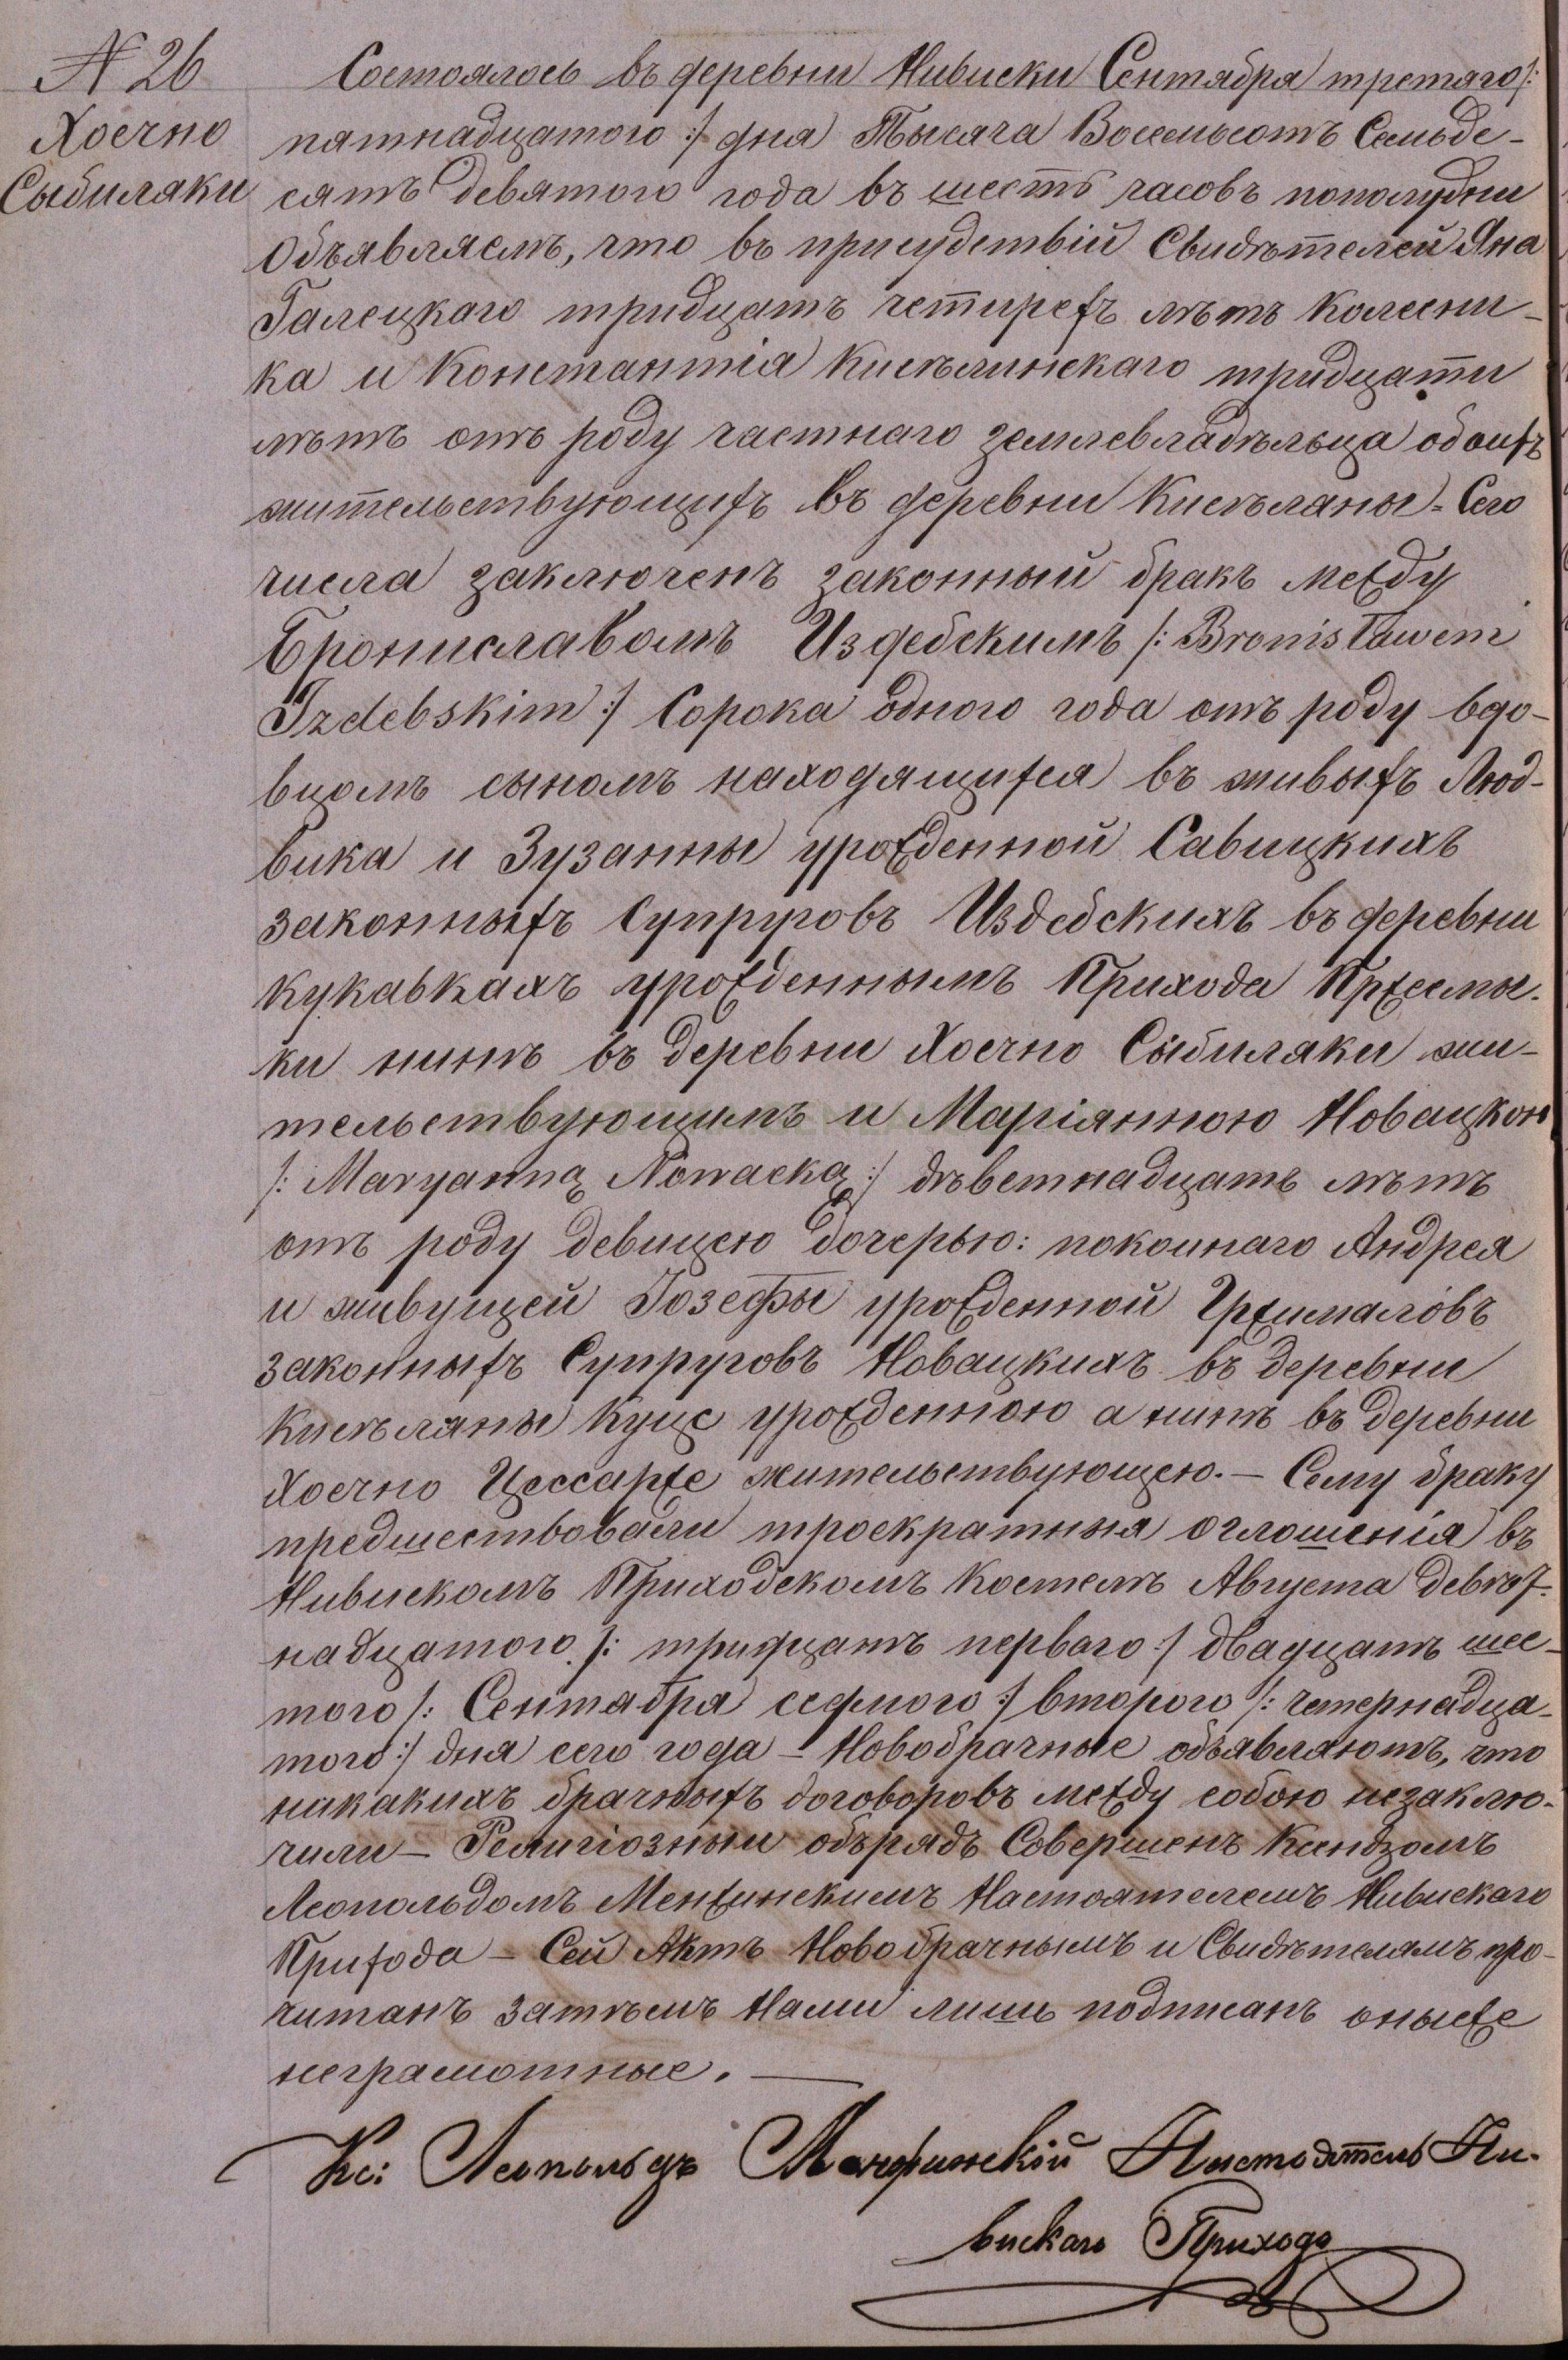 № 26
Хоечно
Сыбиляки
Состоялось въ деревни Нивиски Сентября третяго /:
пятнадцатого :/ дня Тысяча Восемьсотъ Семьде-
сятъ девятого года въ шесть часовъ пополудни
Объявляемъ, что въ присудствій Свидѣтелей Яна
Галецкаго тридцать четирехъ лѣтъ Колесни-
ка и Константія Кисѣлинскаго тридцати
лѣтъ отъ роду частнаго землевладѣльца обоихъ
жительствующихъ въ деревни Кисѣланы - Сего
числа заключенъ законный бракъ между
Брониславомъ Издебскимъ /: Bronisławem
Izdebskim :/ Сорока одного года отъ роду вдо-
вцомъ сыномъ находящихся въ живыхъ Люд-
вика и Зузанны урожденной Савицкихъ
законныхъ Супруговъ Издебскихъ въ деревни
Кукавкахъ урожденнымъ Прихода Пржесмы-
ки нинѣ въ деревни Хоечно Сыбиляки жи-
тельствующимъ и Маріянною Новацкою
/: Maryanną Nowacką :/ дѣветнадцать лѣтъ
отъ роду девицею дочерью: покоинаго Андрея
и живущей Іозефы урожденной Гржималовъ
законныхъ Супруговъ Новацкихъ въ деревни
Кисѣляны Куце урожденною а нинѣ въ деревни
Хоечно Цессарже жительствующею. - Сему браку
предшествовали троекратныя оглошенія въ
Нивискомъ Приходскомъ Костелѣ Августа девят-
надцатого /: тридцать перваго :/ двадцать шес-
того /: Сентабря седмого :/ второго /: четернадца-
того :/ дня сего года - Новобрачные объявляютъ, что
никакихъ брачныхъ договоровъ между собою незаклю-
чили - Религіозный обърядъ Совершенъ Ксендзомъ
Леопольдомъ Менжинскимъ Настоятелемъ Нивискаго
Прихода - Сей Актъ Новобрачнымъ и Свидѣтелямъ про-
читанъ затѣмъ Нами лишь подписанъ оныеже
неграмотные. —
Кс: Леопольдъ Менжинскій Настоятель Ни-
вискаго Прихода